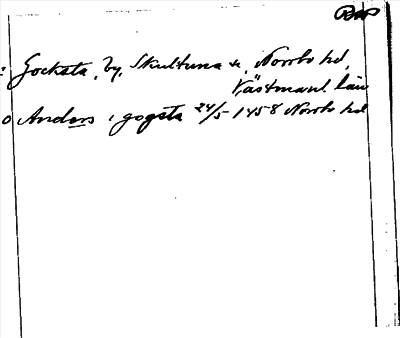 Gocksta, by, Skultuna sn, Norrbo hd,
Västmanl. län
Anders i gogsta 24/5 1458 Norrbo hd